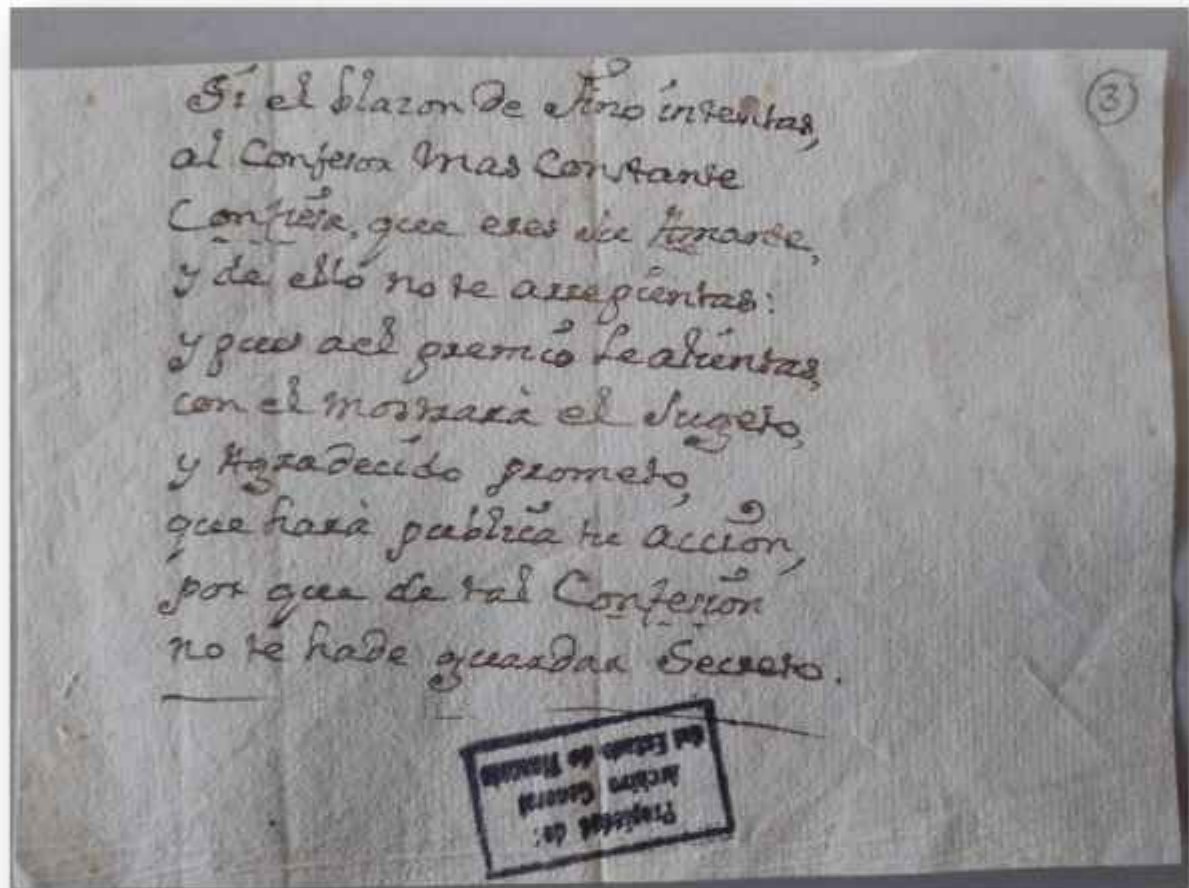 ③
Si el blazon de fino intentas,
al Confesor mas Constante
Confiesa, que eres su Amante,
y de ello no te arrepientas:
y pues ael premio te alientas,
con el mostrarà el Sugeto,
y Agradecido prometo,
que harà publica tu acción,
por que de tal Confesion
no te hade guardar Secreto.
Propiedad de:
Archivo General
del Estado de Tlaxcala